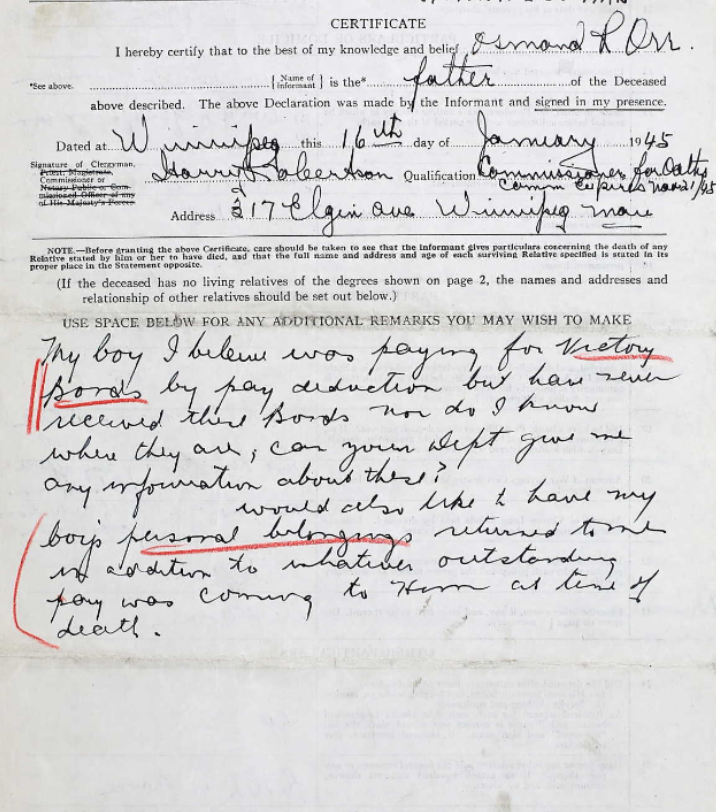 CERTIFICATE
I hereby certify that to the best of my knowledge and belief, Osmond R Orr.
*See above. { Name of Informant } is the* father of the Deceased
above described. The above Declaration was made by the Informant and signed in my presence.
Dated at Winnipeg this 16th day of January 1945
Signature of Clergyman,
Priest, Magistrate,
Commissioner or
Notary Public or Com-
missioned Officer of any
of His Majesty's Forces
Harry Robertson Qualification Commissioner for Oaths
Comm expires Nov 21/45
Address 217 Elgin Ave Winnipeg Man
NOTE.—Before granting the above Certificate, care should be taken to see that the informant gives particulars concerning the death of any
Relative stated by him or her to have died, and that the full name and address and age of each surviving Relative specified is stated in its
proper place in the Statement opposite.
(If the deceased has no living relatives of the degrees shown on page 2, the names and addresses and
relationship of other relatives should be set out below.)
USE SPACE BELOW FOR ANY ADDITIONAL REMARKS YOU MAY WISH TO MAKE
My boy I believe was paying for Victory
Bonds by pay deduction but have never
received these Bonds nor do I know
where they are, can your Dept give me
any information about these?
would also like to have my
boys personal belongings returned to me
in addition to whatever outstanding
pay was coming to Him at time of
death.